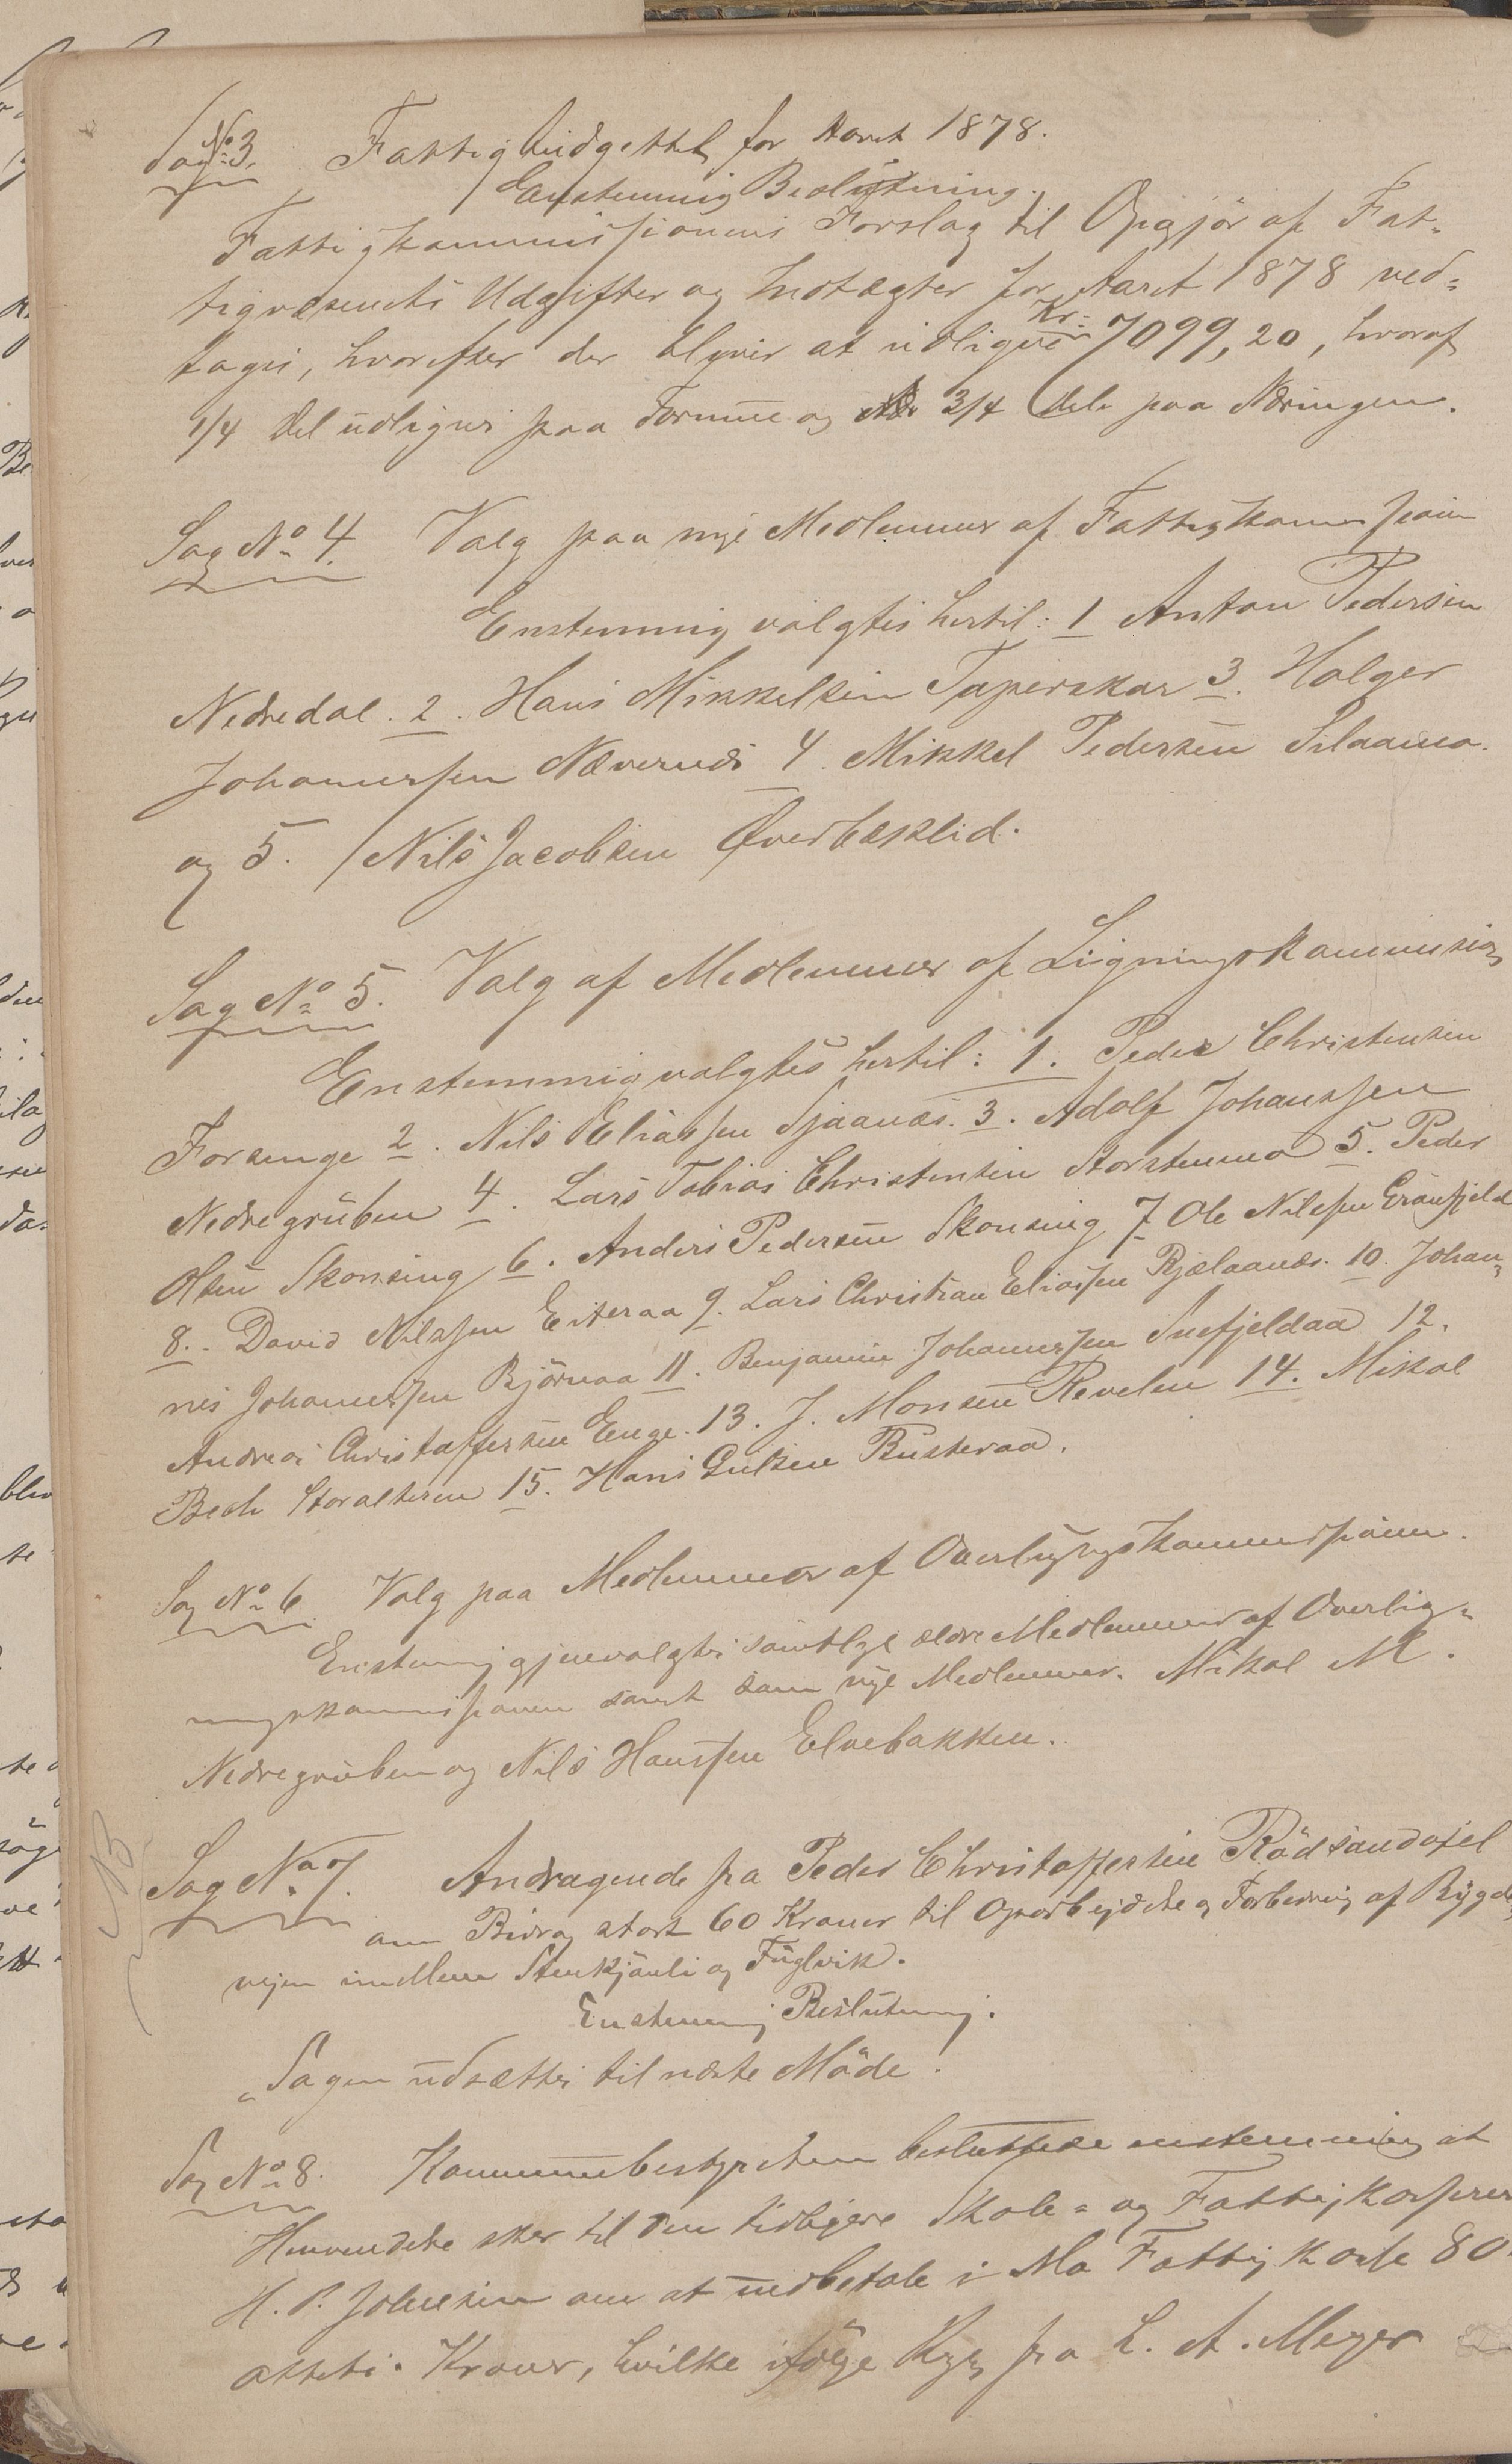 Sag No 3. Fattigbudgettet for Aaret 1878.
Enstemmig Beslutning.
Fattigkommissionens Forslag til Opgjör af Fat-
tigvæsenets Udgifter og Indtægter for Aaret 1878 ved-
tages, hvorefter der bliver at udligne Kr: 7099,20, hvoraf
1/4 Del udlignes paa Formue og 3/4 Dele paa Næringen.
Sag No 4. Valg paa nye Medlemmer af Fattigkommissionen
Enstemmig valgtes hertil: 1 Anton Pedersen
Nedredal. 2. Hans Mikkelsen Taperskar 3. Holger
Johannessen Nævernæs 4. Mikkel Pedersen
og 5. Nils Jacobsen Överbæklid.
Sag No 5. Valg af Medlemmer af Ligningskommission
Enstemmig valgtes hertil: 1. Peder Christensen
Forsmge 2. Nils Eliassen Sjaanæs. 3. Adolf Johanssen
Nedregrüben 4. Lars Tobias Christensen Storstenmo 5. Peder
Olsen Skonseng 6. Anders Pedersen Skonseng 7 Ole Nilssen Grönfjeld
8. David Nilssen Eiteraa 9. Lars Christian Eliassen Bjelaanæs. 10. Johan-
nes Johannessen Björnaa 11. Benjamin Johannessen Snefjeldaa 12.
Andreas Christoffersen Enge. 13. J. Monsen Revelen 14. Mikal
Bech Storalteren 15. Hans Busteraa.
Sag No 6. Valg paa Medlemmer af Overligningskommissionen.
Enstemmig gjenvalgtes samtlige ældre Medlemmer af Overlig-
ningskommissionen samt som nye Medlemmer. Mikal M.
Nedregrüben og Nils Hanssen Elvebakken.
Sag No 7. Andragende fra Peder Christoffersen Rödsandaxel
om Bidrag stort 60 Kroner til Oparbejdelse og Forbedring af Bygde-
vejen imellem Stenkjönli og Fuglvik.
Enstemmig Beslutning.
„Sagen udsættes til næste Möde."
Sag No 8. Kommunebestyrelsen besluttede enstemmig at
Henvendelse sker til den tidligere Skole- og Fattigkasserer
H. P. Johnsen om at indbetale i Mo Fattigkasse 80.
otteti. Kroner, hvilke ifölge fra L. A. Meyer